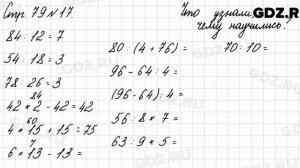 Стр 79 N 17.
Что узнали,
чему научились?
GDZ.RU
84 : 12 = 7
54 : 18 = 3
78 : 26 = 3
84
42 * 2 - 42 = 42
60
4 * 15 + 15 = 75
7
6 * 13 - 13 =
80 : (4 + 76) =
96 - 64 : 4 =
(96 - 64) : 4 =
56 : 8 * 7 =
63 : 9 * 5 =
70 : 10 =